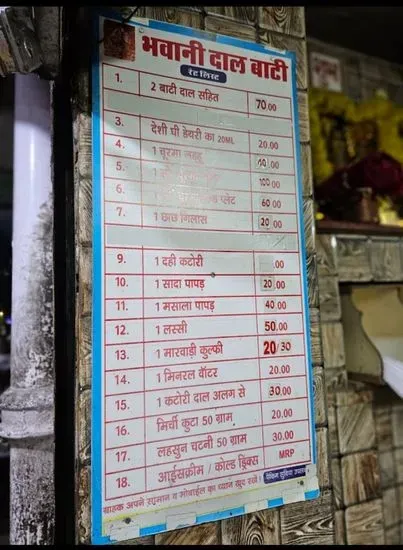 भवानी दाल बाटी
रेट लिस्ट
1. 2 बाटी दाल सहित 70.00
3. देशी घी डेयरी का 20ML 20.00
4. 1 चूरमा लड्डू 40.00
5. 1 100.00
6. प्लेट 60.00
7. 1 छाछ गिलास 20.00
9. 1 दही कटोरी .00
10. 1 सादा पापड़ 20.00
11. 1 मसाला पापड़ 40.00
12. 1 लस्सी 50.00
13. 1 मारवाड़ी कुल्फी 20/30
14. 1 मिनरल वॉटर 20.00
15. 1 कटोरी दाल अलग से 30.00
16. मिर्ची कुटा 50 ग्राम 20.00
17. लहसुन चटनी 50 ग्राम 30.00
18. आईसक्रीम / कोल्ड ड्रिंक्स MRP
ग्राहक अपने सामान व मोबाईल का ध्यान खुद रखें।